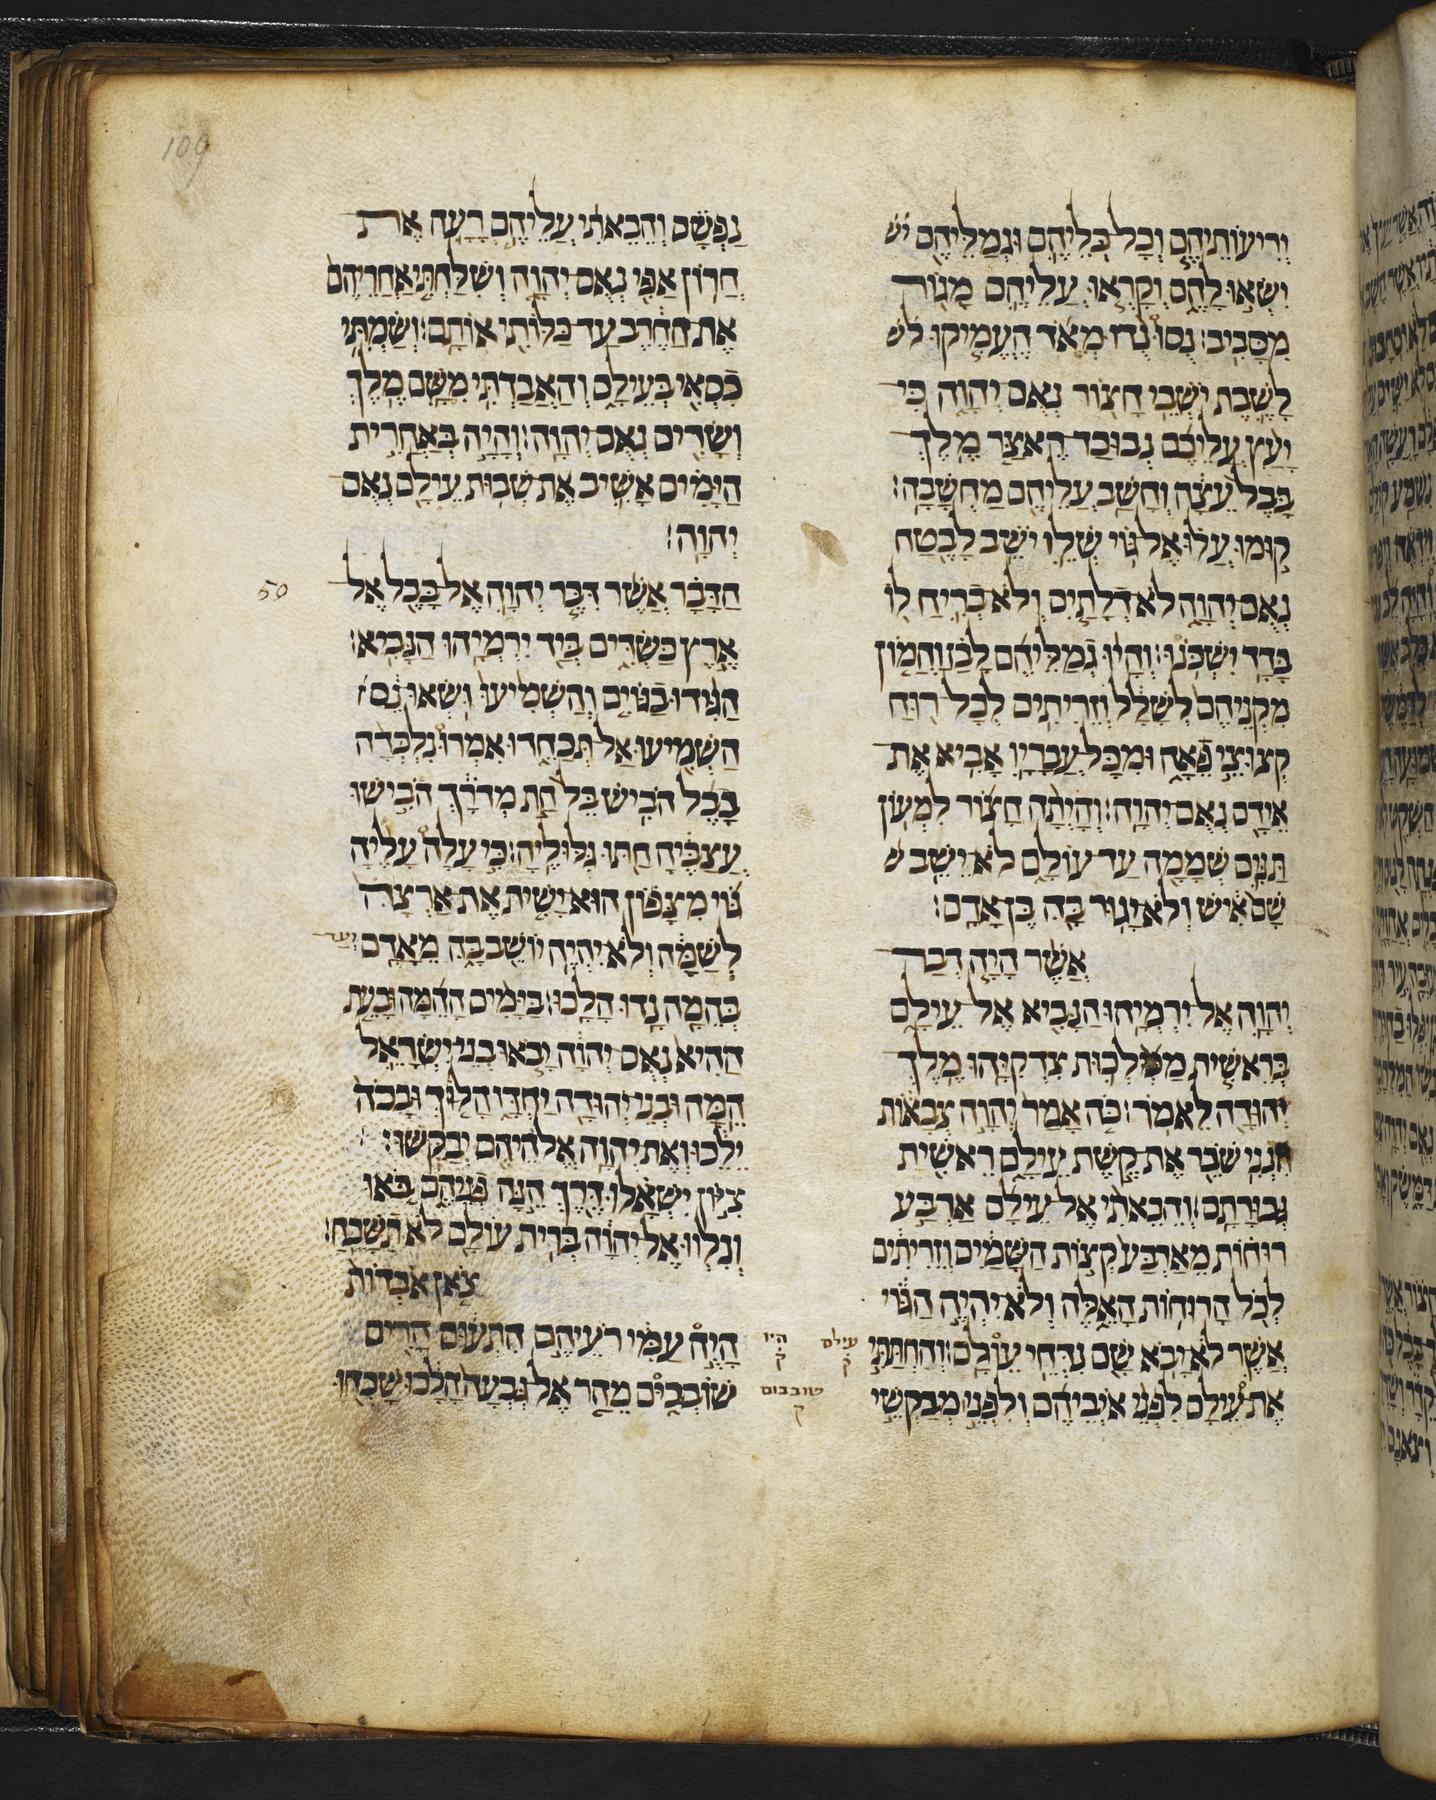 109
יְרִיעוֹתֵיהֶם וְכָל כְּלֵיהֶם וּגְמַלֵּיהֶם יש
יִשְׂאוּ לָהֶם וְקָרְאוּ עֲלֵיהֶם מָגוֹר
מִסָּבִיב׃ נֻסוּ נֻדוּ מְאֹד הֶעֱמִיקוּ לש
לָשֶׁבֶת יֹשְׁבֵי חָצוֹר נְאֻם יְהוָה כִּי
יָעַץ עֲלֵיכֶם נְבוּכַדרֶאצַּר מֶלֶךְ
בָּבֶל עֵצָה וְחָשַׁב עֲלֵיהֶם מַחֲשָׁבָה׃
קוּמוּ עֲלוּ אֶל גּוֹי שְׁלֵיו יֹשֵׁב לָבֶטַח
נְאֻם יְהוָה לֹא דְלָתַיִם וְלֹא בְרִיחַ לוֹ
בָּדָד יִשְׁכֹּנוּ׃ וְהָיוּ גְמַלֵּיהֶם לָבַז וַהֲמוֹן
מִקְנֵיהֶם לְשָׁלָל וְזֵרִיתִים לְכָל רוּחַ
קְצוּצֵי פֵאָה וּמִכָּל עֲבָרָיו אָבִיא אֶת
אֵידָם נְאֻם יְהוָה׃ וְהָיְתָה חָצוֹר לִמְעוֹן
תַּנִּים שְׁמָמָה עַד עוֹלָם לֹא יֵשֵׁב ש
שָׁם אִישׁ וְלֹא יָגוּר בָּהּ בֶּן אָדָם׃
אֲשֶׁר הָיָה דְבַר
יְהוָה אֶל יִרְמְיָהוּ הַנָּבִיא אֶל עֵילָם
בְּרֵאשִׁית מַלְכוּת צִדְקִיָּהוּ מֶלֶךְ
יְהוּדָה לֵאמֹר׃ כֹּה אָמַר יְהוָה צְבָאוֹת
הִנְנִי שֹׁבֵר אֶת קֶשֶׁת עֵילָם רֵאשִׁית
גְּבוּרָתָם׃ וְהֵבֵאתִי אֶל עֵילָם אַרְבַּע
רוּחוֹת מֵאַרְבַּע קְצוֹת הַשָּׁמַיִם וְזֵרִיתִים
לְכֹל הָרוּחוֹת הָאֵלֶּה וְלֹא יִהְיֶה הַגּוֹי
אֲשֶׁר לֹא יָבֹא שָׁם נִדְּחֵי עוֹלָם׃ וְהַחְתַּתִּי
אֶת עֵילָם לִפְנֵי אֹיְבֵיהֶם וְלִפְנֵי מְבַקְשֵׁי
עילם
ק
נַפְשָׁם וְהֵבֵאתִי עֲלֵיהֶם רָעָה אֶת
חֲרוֹן אַפִּי נְאֻם יְהוָה וְשִׁלַּחְתִּי אַחֲרֵיהֶם
אֶת הַחֶרֶב עַד כַּלּוֹתִי אוֹתָם׃ וְשַׂמְתִּי
כִסְאִי בְּעֵילָם וְהַאֲבַדְתִּי מִשָּׁם מֶלֶךְ
וְשָׂרִים נְאֻם יְהוָה׃ וְהָיָה בְּאַחֲרִית
הַיָּמִים אָשִׁיב אֶת שְׁבוּת עֵילָם נְאֻם
יְהוָה׃
50
הַדָּבָר אֲשֶׁר דִּבֶּר יְהוָה אֶל בָּבֶל אֶל
אֶרֶץ כַּשְׂדִּים בְּיַד יִרְמְיָהוּ הַנָּבִיא׃
הַגִּידוּ בַגּוֹיִם וְהַשְׁמִיעוּ וּשְׂאוּ נֵס
הַשְׁמִיעוּ אַל תְּכַחֵדוּ אִמְרוּ נִלְכְּדָה
בָבֶל הֹבִישׁ בֵּל חַת מְרֹדָךְ הֹבִישׁוּ
עֲצַבֶּיהָ חַתּוּ גִּלּוּלֶיהָ׃ כִּי עָלָה עָלֶיהָ
גּוֹי מִצָּפוֹן הוּא יָשִׁית אֶת אַרְצָהּ
לְשַׁמָּה וְלֹא יִהְיֶה יוֹשֵׁב בָּהּ מֵאָדָם וְעַד
בְּהֵמָה נָדוּ הָלָכוּ׃ בַּיָּמִים הָהֵמָּה וּבָעֵת
הַהִיא נְאֻם יְהוָה יָבֹאוּ בְנֵי יִשְׂרָאֵל
הֵמָּה וּבְנֵי יְהוּדָה יַחְדָּו הָלוֹךְ וּבָכֹה
יֵלֵכוּ וְאֶת יְהוָה אֱלֹהֵיהֶם יְבַקֵּשׁוּ׃
צִיּוֹן יִשְׁאָלוּ דֶּרֶךְ הֵנָּה פְנֵיהֶם בֹּאוּ
וְנִלְווּ אֶל יְהוָה בְּרִית עוֹלָם לֹא תִשָּׁכֵחַ׃
צֹאן אֹבְדוֹת
הָיָה עַמִּי רֹעֵיהֶם הִתְעוּם הָרִים
שׁוֹבְבִים מֵהַר אֶל גִּבְעָה הָלָכוּ שָׁכְחוּ
היו
ק
שובבום
ק